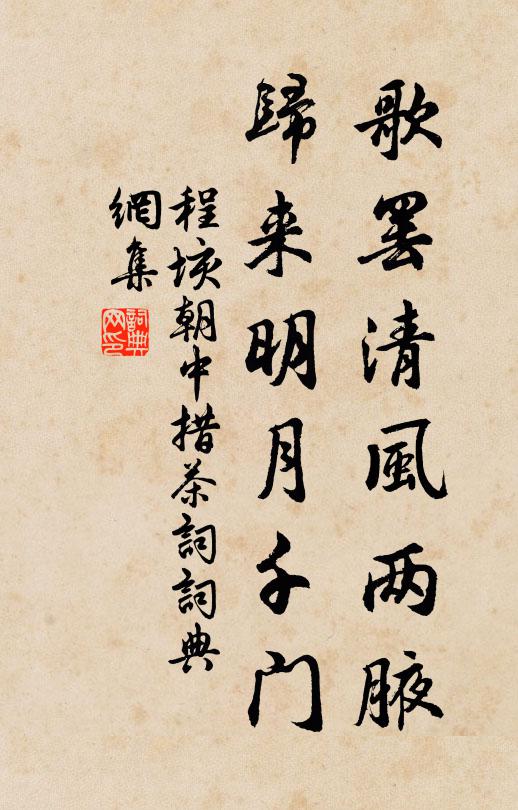 歌罢清風两腋
歸来明月千門
程垓朝中措茶詞詞典
網集
詞典
网印